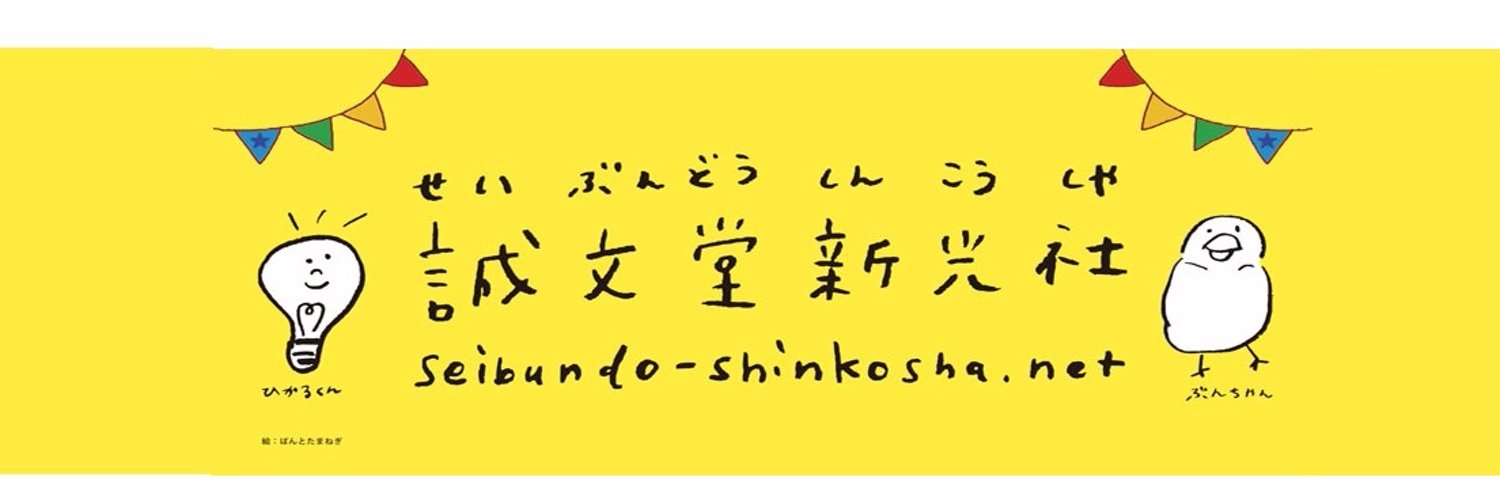 せいぶんどうしんこうしゃ
誠文堂新光社
seibundo-shinkosha.net
ひかるくん
ぶんちゃん
絵：ぱんとたまねぎ